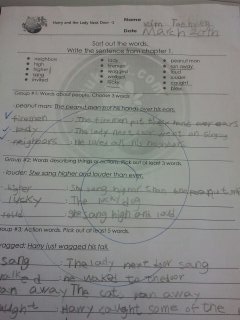 Harry and the Lady Next Door -1
Name
Date March 20th
Sort out the words.
Write the sentence from chapter 1.
neighbors
high
higher
sang
invited
lady
fireman
wagged
walked
lucky
peanut man
ran away
loud
louder
caught
Group #1: Words about people. Choose 3 words
peanut man: The peanut man put his hands over his ears.
firemen : The firemen put they hand over ears
lady : The lady next door went on singing
neighbors : He loved all his neighbors
Group #2: Words describing things or actions. Pick out at least 3 words.
louder: She sang higher and louder than ever.
higher : She sang higher than the peanut
lucky : The lucky dog
loud : She sang high and loud
Group #3: Action words. Pick out at least 5 words.
wagged: Harry just wagged his tail.
sang : The lady next door sang
walked he walked to the door
ran away The cat ran away
caught Harry caught some of the